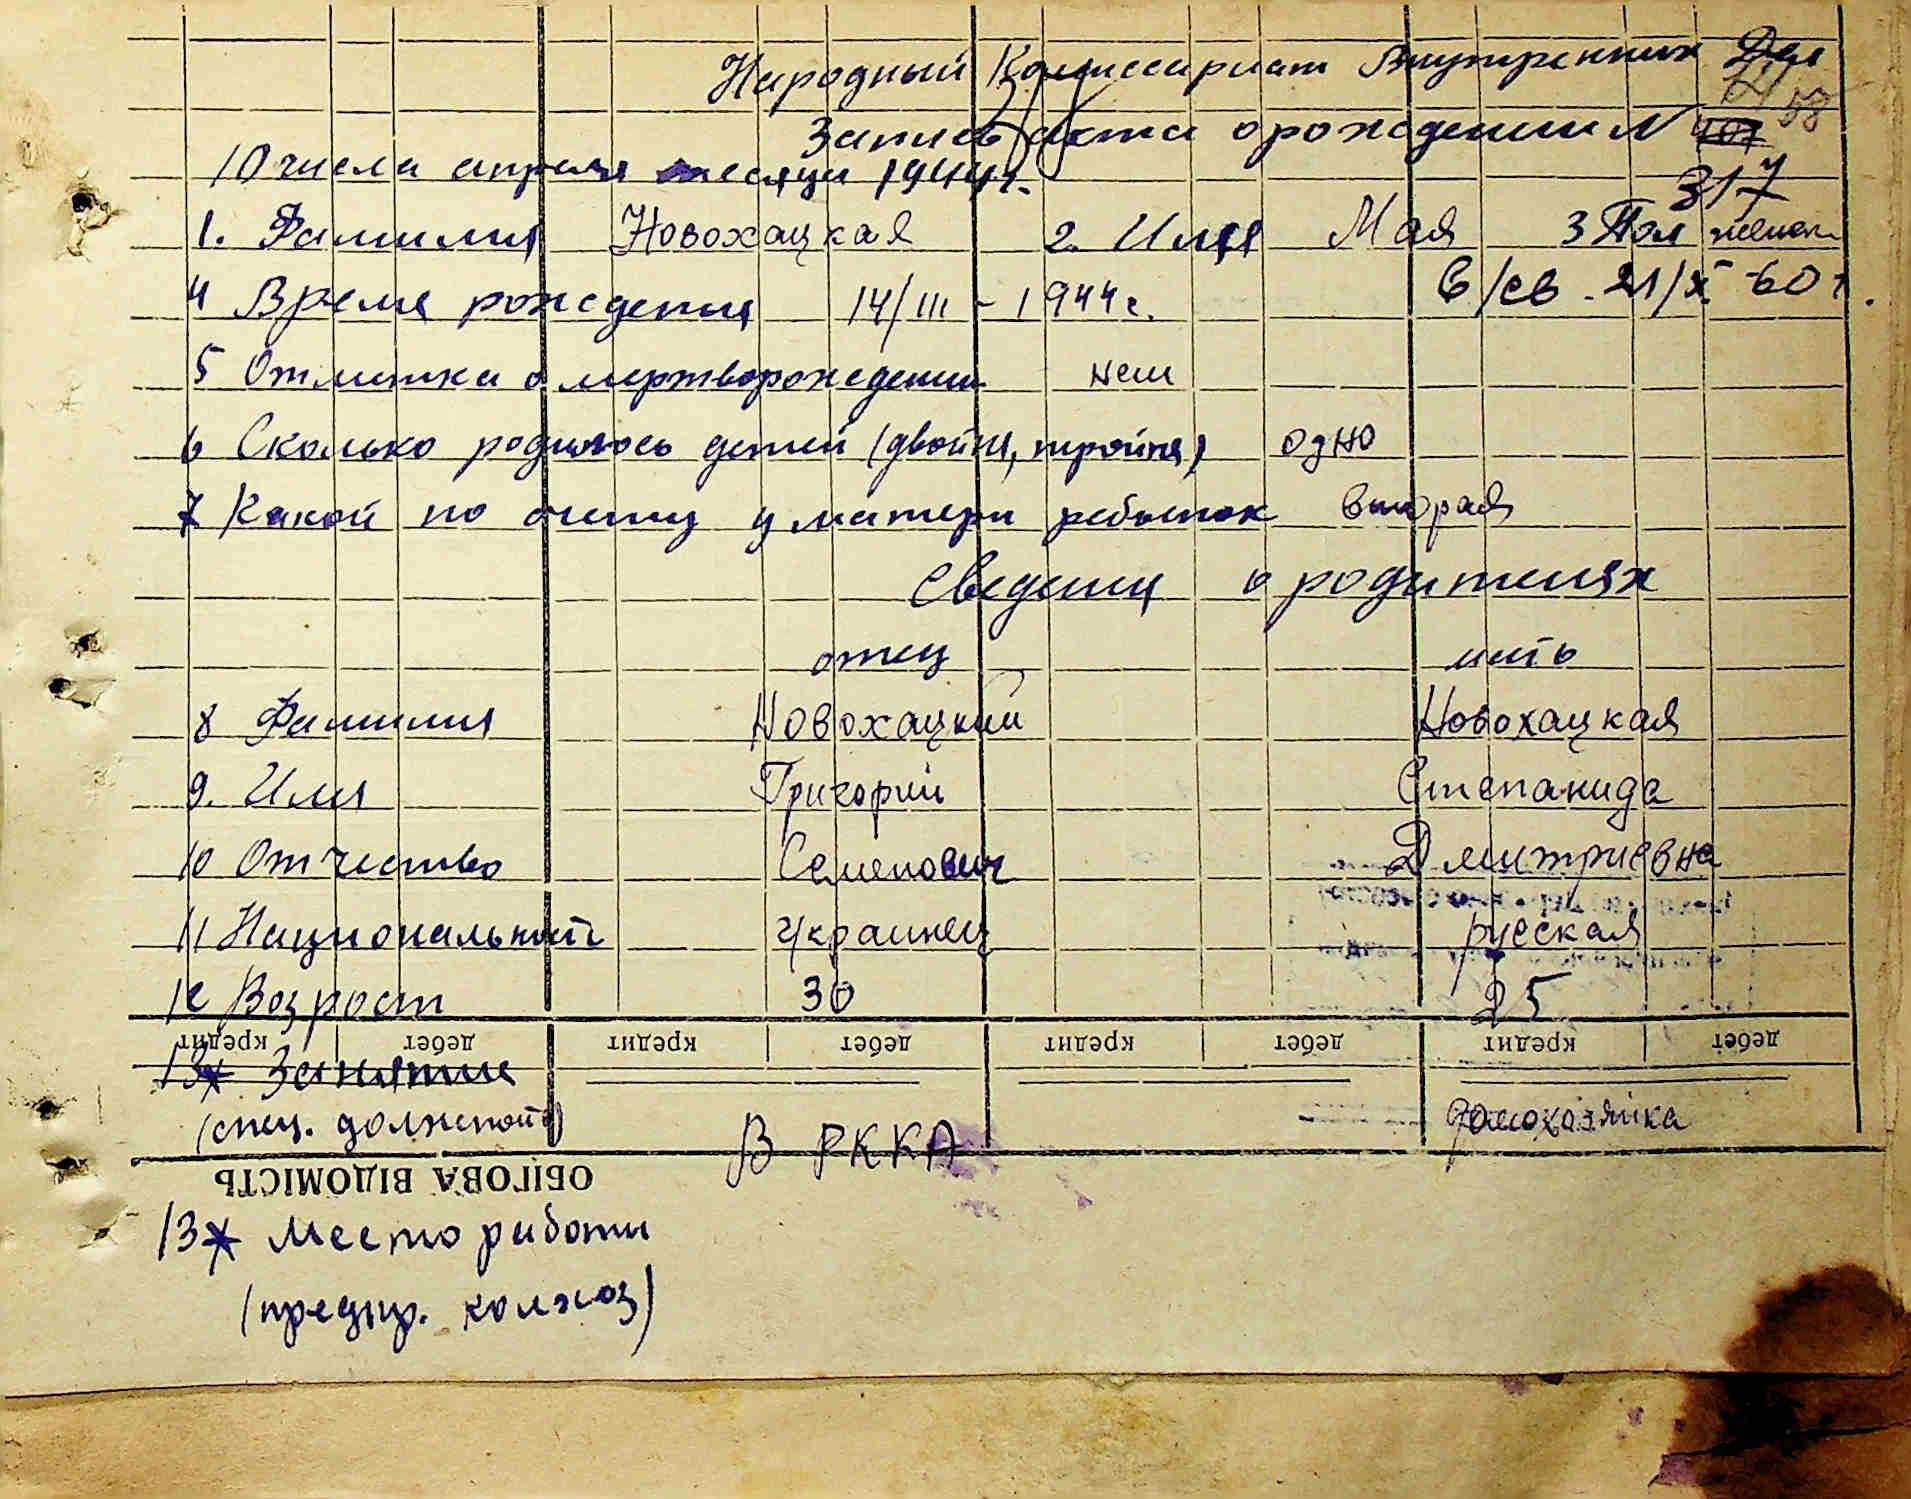 Народный Комиссариат Внутренних Дел
58
Запись акта о рождении N
317
10 числа апреля месяца 1944 г.
1. Фамилия Новохацкая 2. Имя Мая 3 Пол женск.
4 Время рождения 14/III - 1944 г. в/св. 21/X - 60 г.
5 Отметка о мертворождении нет
6 Сколько родилось детей (двойня, тройня) одно
7 Какой по счету у матери ребенок вторая
Сведения о родителях
отец мать
8 Фамилия Новохацкий Новохацкая
9. Имя Григорий Степанида
10 Отчество Семенович Дмитриевна
11 Национальность Украинец русская
12 Возраст 30 25
кредит дебет кредит дебет кредит дебет кредит дебет
13* Занятие
(спец. должность) В РККА домохозяйка
ОБІГОВА ВІДОМІСТЬ
13* Место работы
(предпр. колхоз)